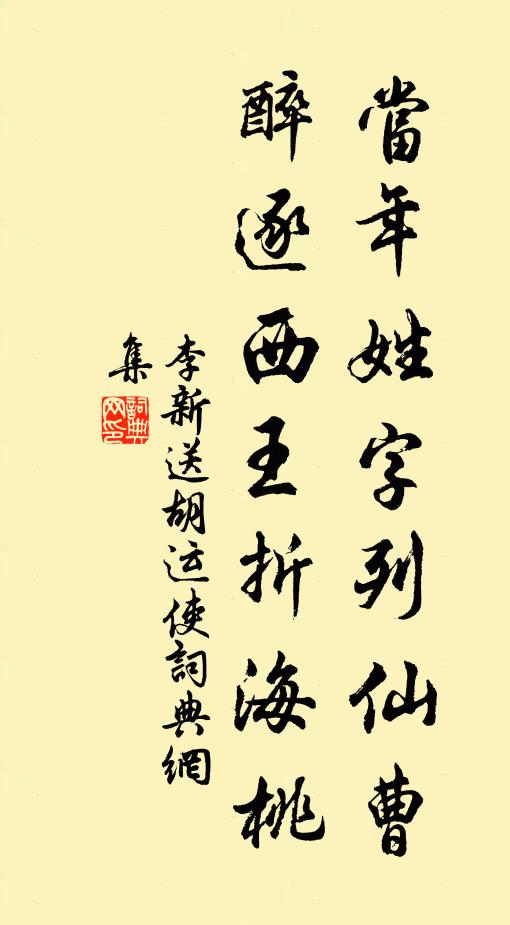 當年姓字列仙曹
醉逐西王折海桃
李新送胡运使詞典網
集
詞典网印